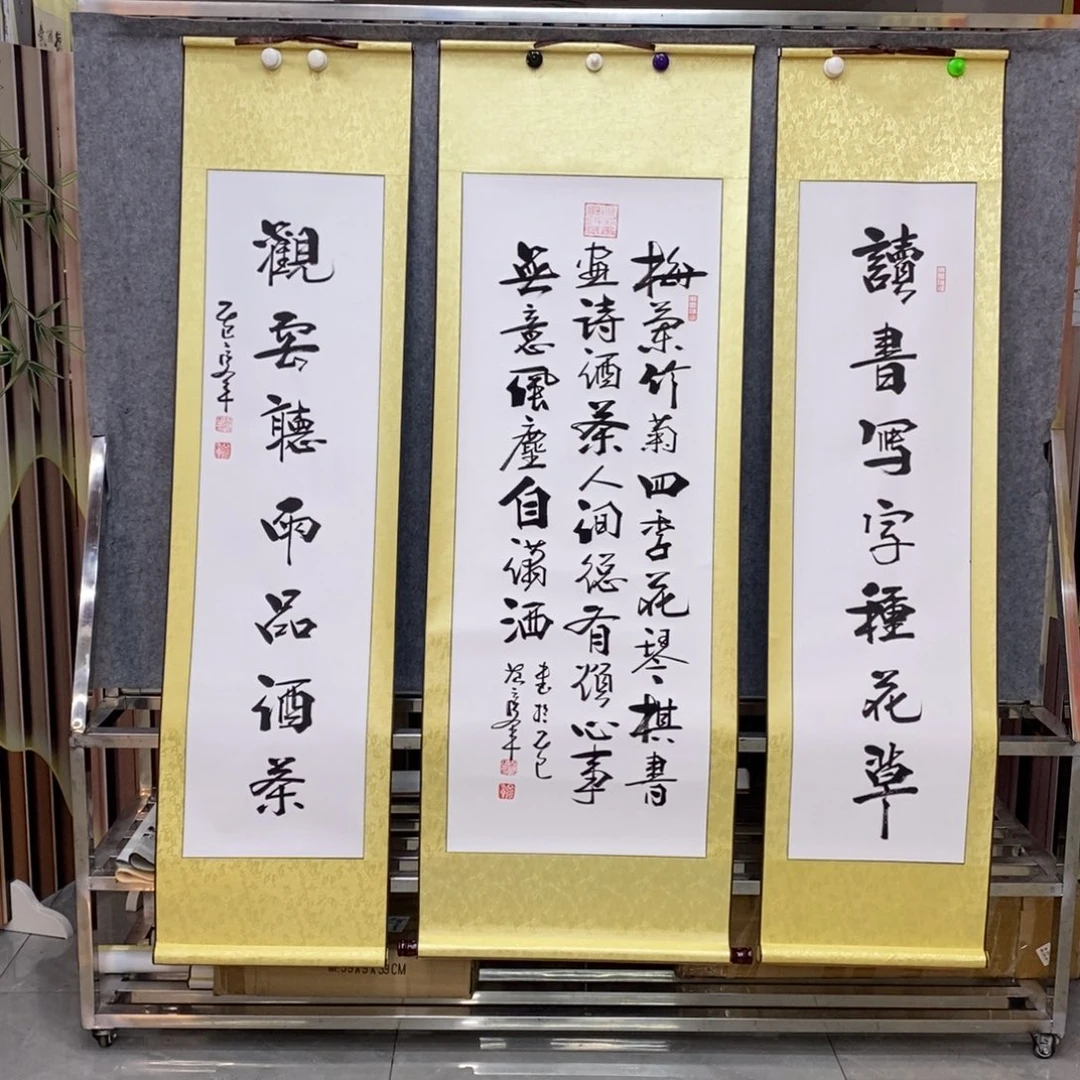 讀書写字種花草
梅蘭竹菊四季花琴棋書
畫诗酒茶人间总有煩心事
無意風塵自潇洒
書於乙巳
觀雲聽雨品酒茶
乙巳
M:59X9X39CM